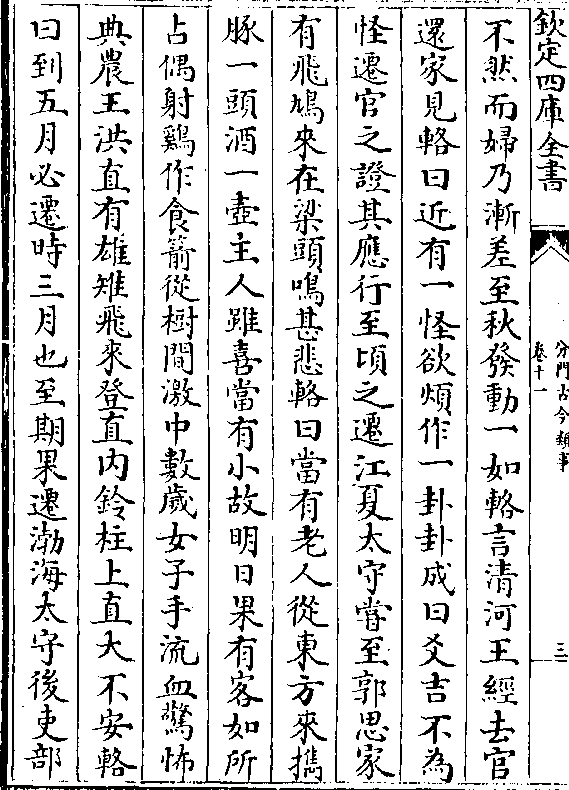 欽定四庫全書
分門古今類事
卷十一
三
不然而婦乃漸差至秋發動一如輅言清河王經去官
還家見輅曰近有一怪欲煩作一卦卦成曰爻吉不為
怪遷官之證其應行至頃之遷江夏太守嘗至郭思家
有飛鳩來在梁頭鳴甚悲輅曰當有老人從東方來攜
豚一頭酒一壺主人雖喜當有小故明日果有客如所
占偶射鷄作食箭從樹間激中數歲女子手流血驚怖
典農王洪直有雄雉飛來登直内鈴柱上直大不安輅
曰到五月必遷時三月也至期果遷渤海太守後吏部